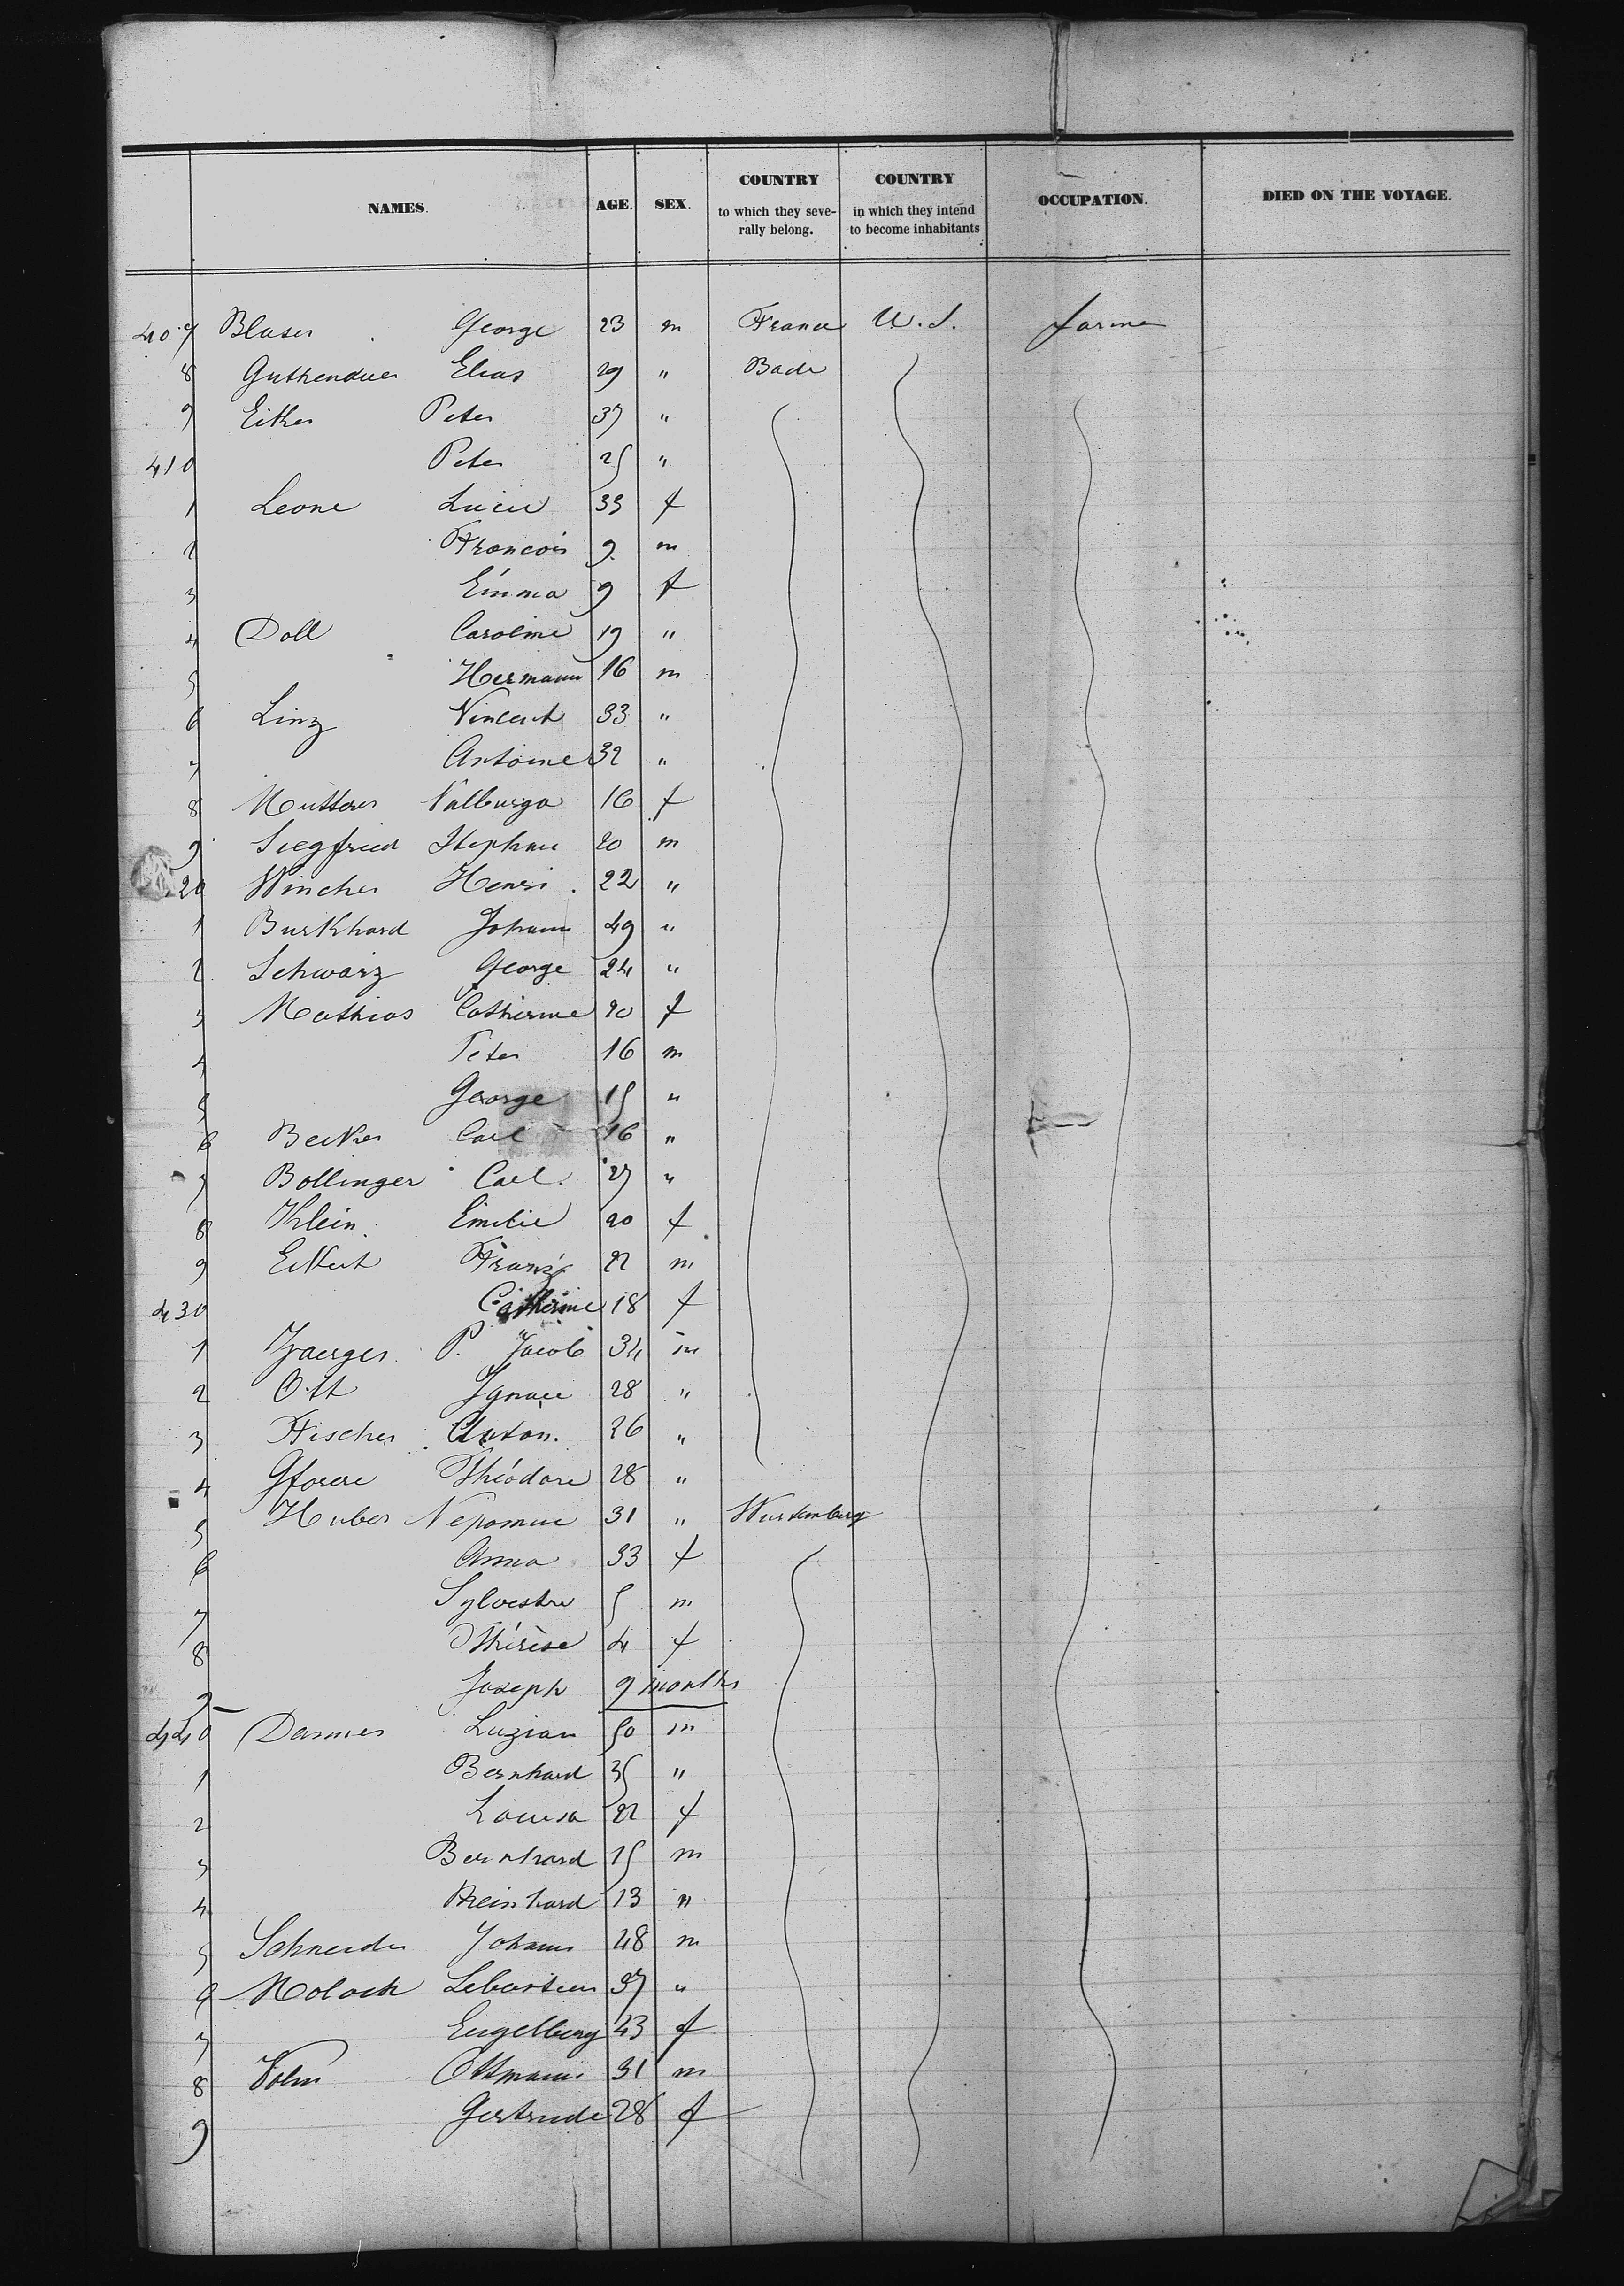 NAMES. AGE. SEX. COUNTRY to which they seve-rally belong. COUNTRY in which they intend to become inhabitants OCCUPATION. DIED ON THE VOYAGE.
407 Blaser George 23 m France U.S. farmer
8 Elias 29 " Bade
9 Eiker Peter 37 "
410 Peter 25 "
1 Leone Lucie 33 f
2 Francois 9 m
3 Emma 9 f
4 Doll Caroline 19 "
5 Hermann 16 m
6 Linz Vincent 33 "
7 Antoine 32 "
8 Valburga 16 f
9 Siegfried Stephan 20 m
20 Wincher Henri 22 "
1 Burkhard Johann 49 "
2 Schwarz George 24 "
3 Mathias Catherine 20 f
4 Peter 16 m
5 George 15 "
6 Becker Carl 16 "
7 Bollinger Carl 27 "
8 Klein Emilie 20 f
9 Eckert Franz 22 m
430 Catherine 18 f
1 Jaeger P. Jacob 34 m
2 Ott Ignace 28 "
3 Fischer Anton. 26 "
4 Théodore 28 "
5 Huber Nepomuc 31 " Wurtemberg
6 Anna 33 f
7 Sylvestre 5 m
8 Thérèse 4 f
9 Joseph 9 months
440 Danner Luzian 50 m
1 Bernhard 35 "
2 Louisa 22 f
3 Bernhard 15 m
4 Reinhard 13 "
5 Schneider Johann 48 m
6 Moloch Sebastien 37 "
7 Engelburg 43 f
8 Volm Ottmann 31 m
9 Gertrude 28 f